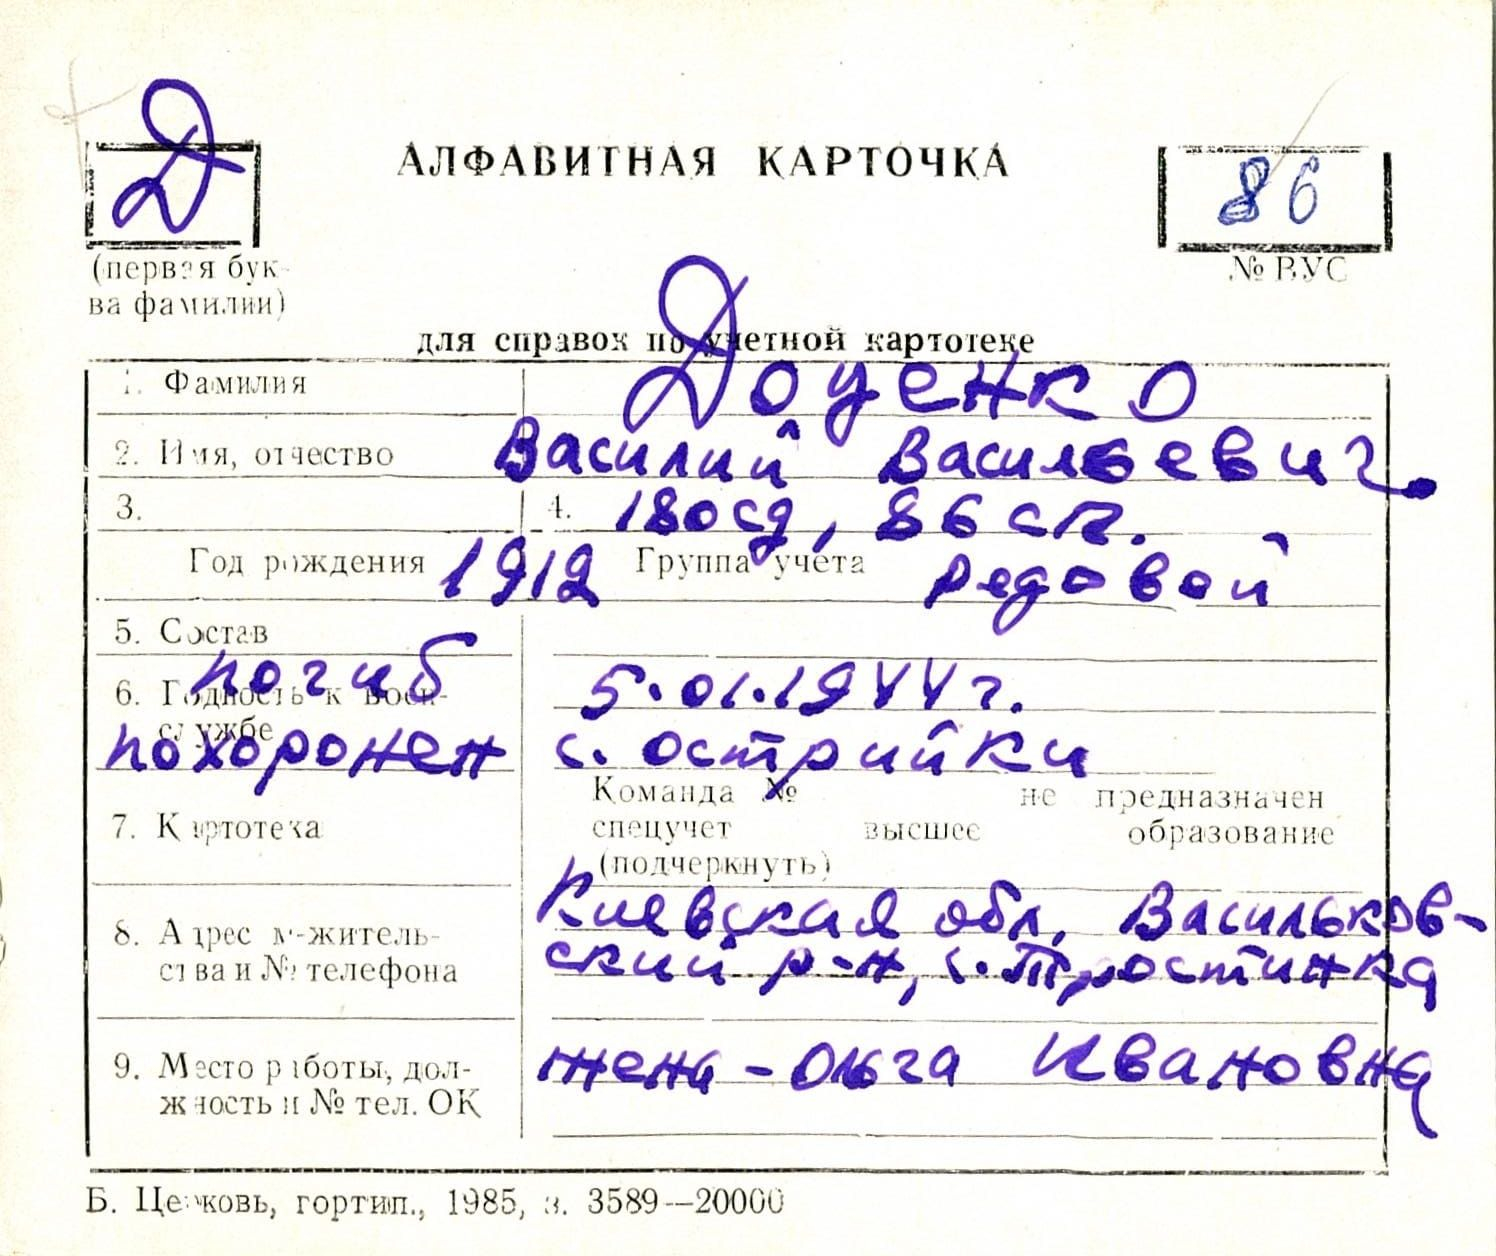 Д
АЛФАВИТНАЯ КАРТОЧКА
86
(первая бук-
ва фамилии)
№ ВУС
для справок по учетной картотеке
1. Фамилия Доценко
2. Имя, отчество Василий Васильевич.
3. 4. 180сд, 86 сп.
Год рождения 1912 Группа учёта рядовой
5. Состав
погиб 5.01.1944г.
6. Годность к воен-
службе
похоронен с. Острийки
Команда № не предназначен
7. Картотека спецучет высшее образование
(подчеркнуть)
Киевская обл, Васильков-
8. Адрес м-житель-
ства и № телефона ский р-н, с. Тростинка
9. Место работы, дол- жена - Ольга Ивановна
жность и № тел. ОК
Б. Церковь, гортип., 1985, з. 3589—20000